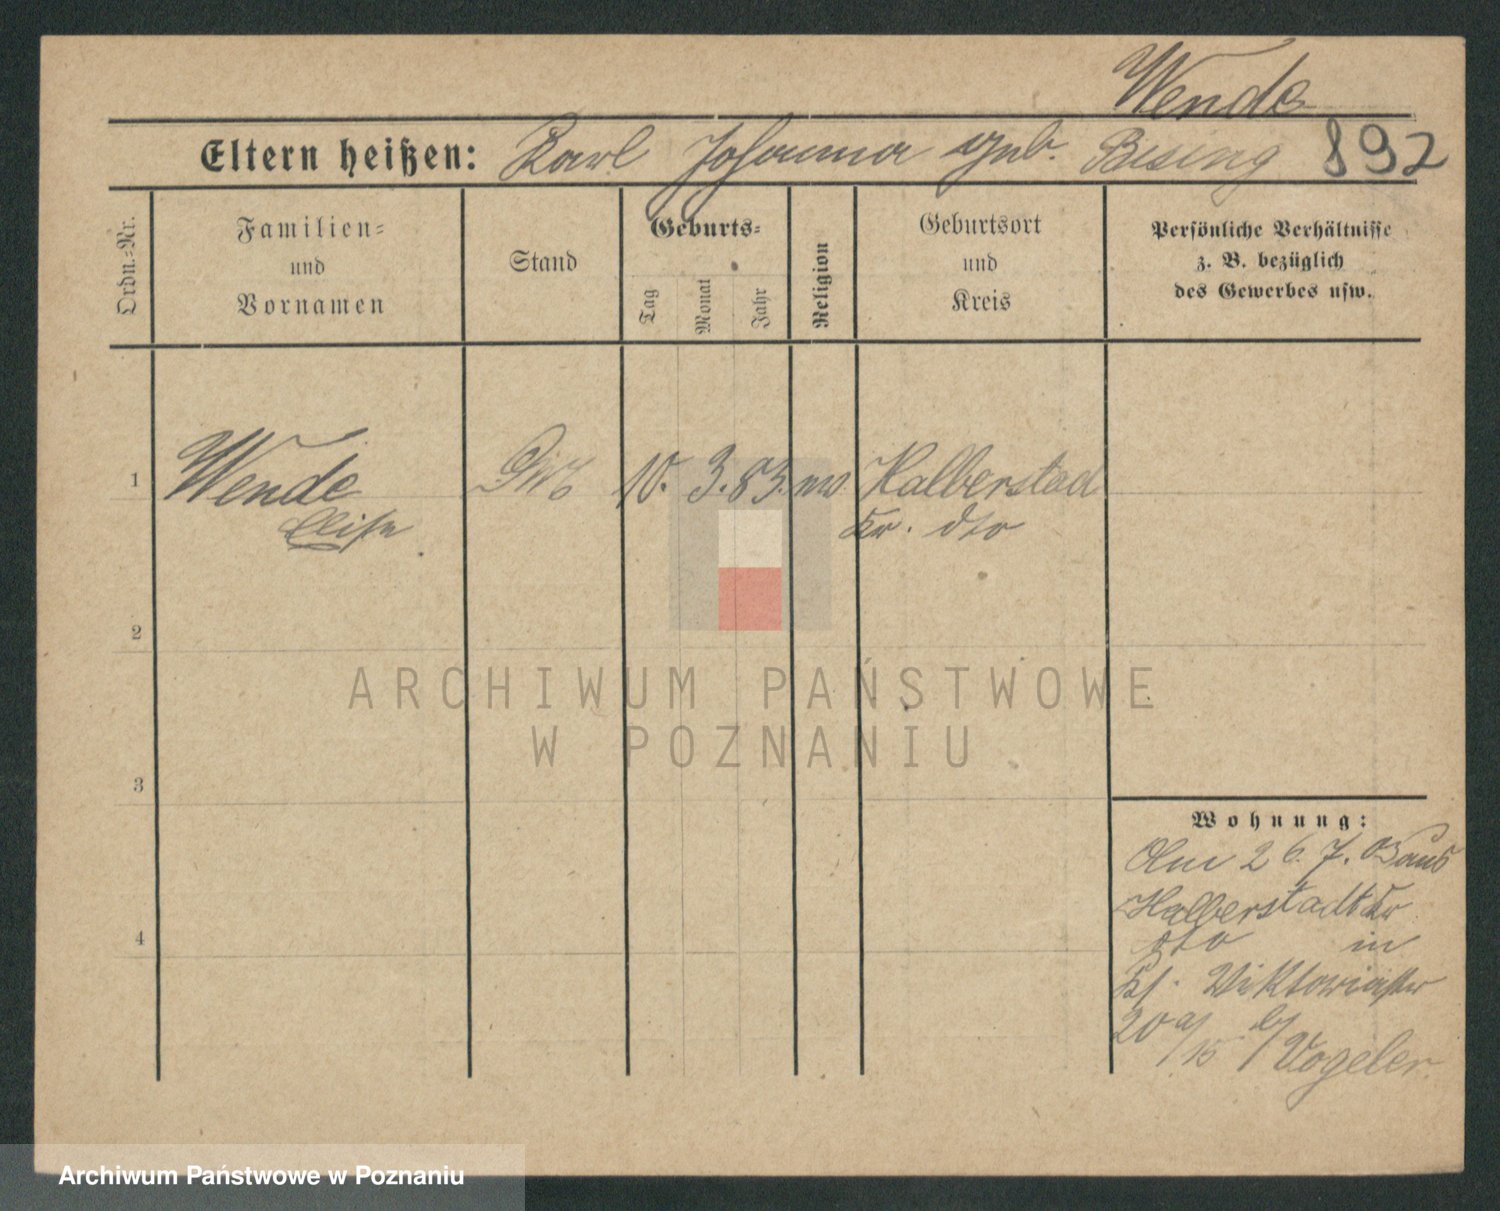 Wende
Eltern heißen: Karl Johanna geb. Bising 892
Ordn.-Nr.
Familien-
und
Vornamen
Stand
Geburts-
Tag
Monat
Jahr
Religion
Geburtsort
und
Kreis
Persönliche Verhältnisse
z. B. bezüglich
des Gewerbes usw.
1 Wende 10. 3. 83. Halberstad
Elise Kr. dto
2
3
4
Wohnung:
Am 26. 7. 03 aus
Halberstadt Kr
dto in
Viktoriastr
20 a/15 b/ Vogeler
ARCHIWUM PAŃSTWOWE
W POZNANIU
Archiwum Państwowe w Poznaniu